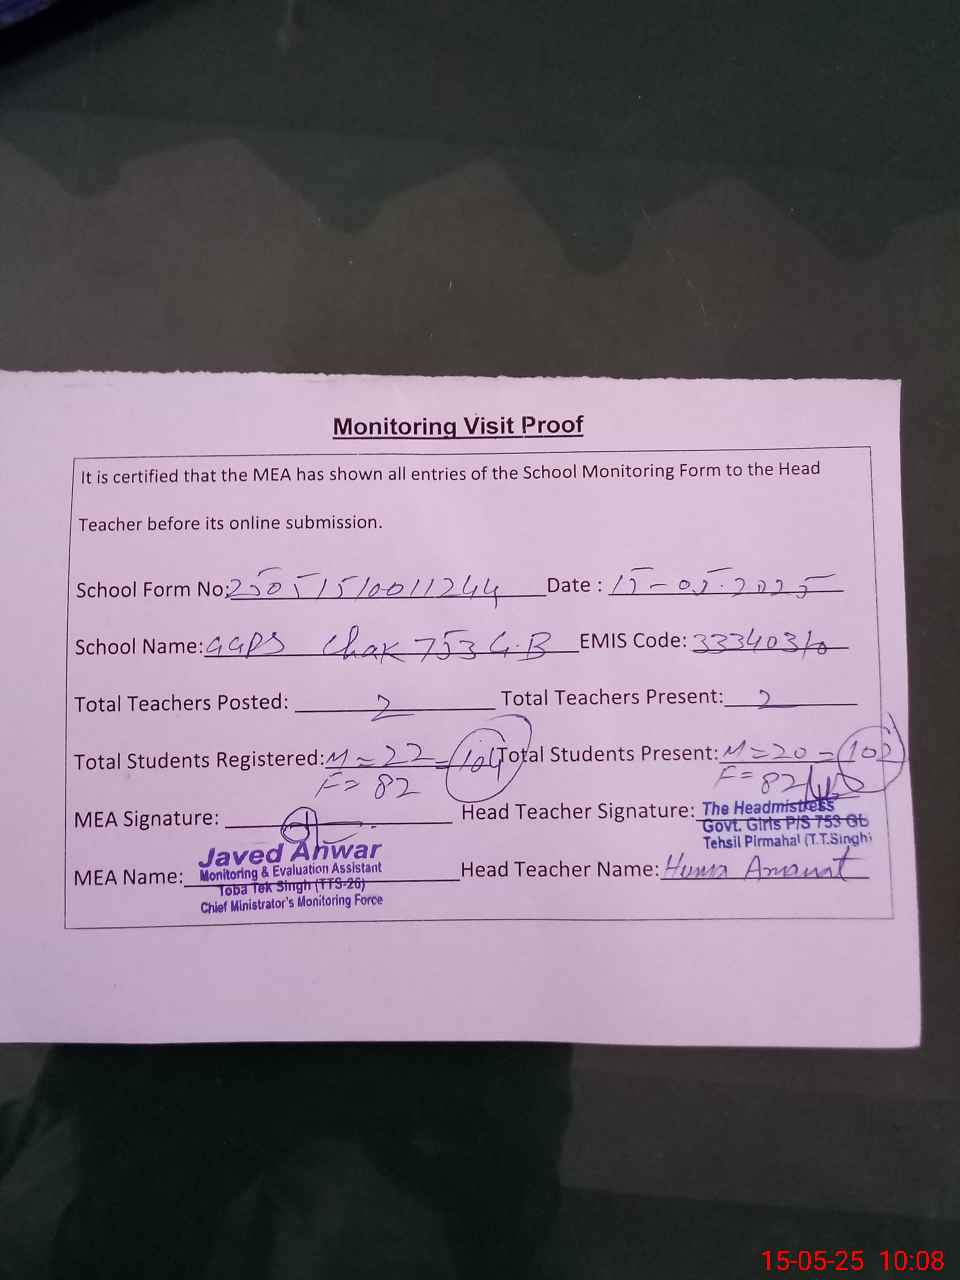 Monitoring Visit Proof
It is certified that the MEA has shown all entries of the School Monitoring Form to the Head
Teacher before its online submission.
School Form No: 25051510011244 Date : 15-05-2025
School Name: GGPS Chak 753 G.B EMIS Code: 33340310
Total Teachers Posted: 2 Total Teachers Present: 2
Total Students Registered: M = 22 = 104 Total Students Present: M = 20 = 102
F = 82 F = 82
MEA Signature: Head Teacher Signature: The Headmistress
Govt. Girls P/S 753 Gb
Tehsil Pirmahal (T.T.Singh)
Javed Anwar
Monitoring & Evaluation Assistant
MEA Name: Toba Tek Singh (TTS-26) Head Teacher Name: Huma Amanat
Chief Ministrator's Monitoring Force
15-05-25 10:08